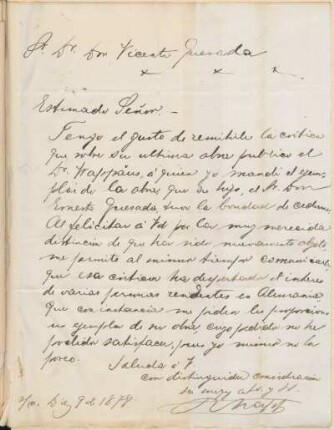 Sr. Dr. Don Vicente Quesada
Estimado Señor.—
Tengo el gusto de remitirle la crítica
que sobre su ultima obra publicó el
Dr. Wappäus, á quien yo mandé el ejem-
plar de la obra que su hijo, el Sr. Don
Ernesto Quesada tuvo la bondad de cederme.
Al felicitar á Vd por la muy merecida
distincion de que ha sido nuevamente objeto
me permito al mismo tiempo comunicarle
que esa crítica ha despertado el interes
de varias personas residentes en Alemania
que con instancia me piden les proporcione
un ejemplar de su obra, cuyo pedido no he
podido satisfacer, pues yo mismo no la
poseo.
Saluda á V
con distinguida consideracion
su muy att. y SS.
s/c. 9 de 1879